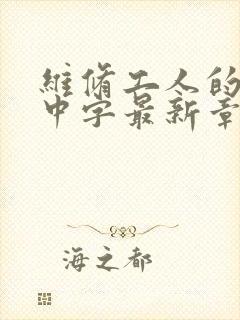 維脩工人的
中字最新章
海之都